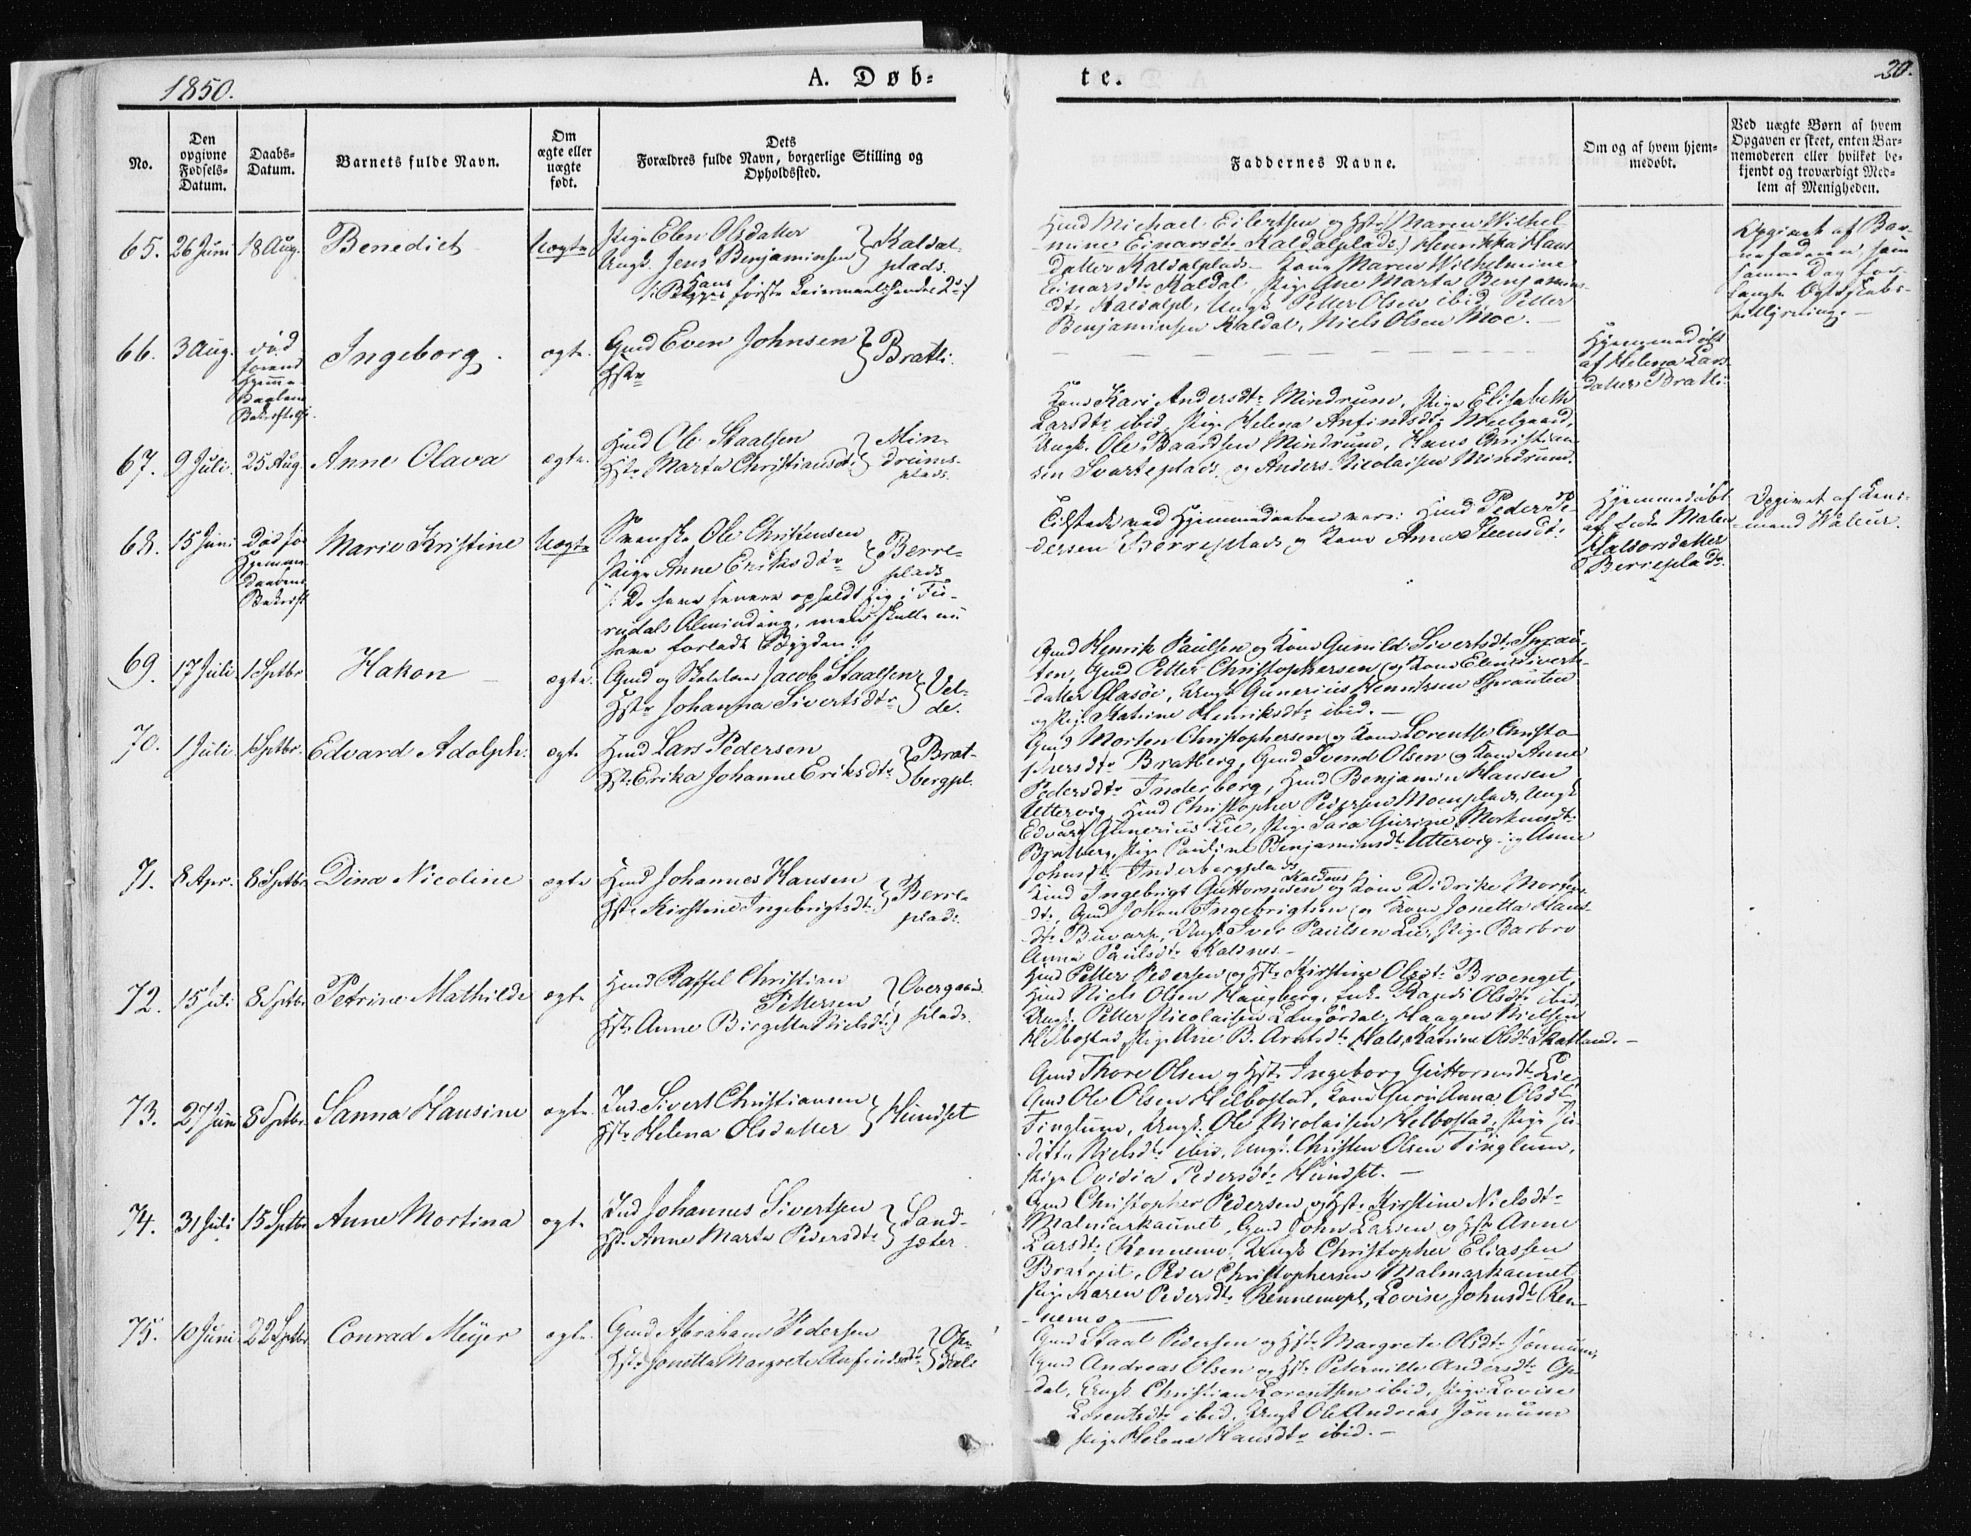 1850.
A. Døb-
te.
20.
No.
Den
opgivne
Fødsels-
Datum.
Daabs-
Datum.
Barnets fulde Navn.
Om
ægte eller
uægte
født.
Dets
Forældres fulde Navn, borgerlige Stilling og
Opholdssted.
Faddernes Navne.
Om og af hvem hjem-
medøbt.
Ved uægte Børn af hvem
Opgaven er skeet, enten Bar-
nemoderen eller hvilket be-
kjendt og troværdigt Med-
lem af Menigheden.
65. 26 Juni 18 Aug. Benedict Uægte
Pige Elen Olsdatter
Ungk. Jens Benjaminsen
Kaldal-
plads.
Hans
første Leiermaal
Huusmd Michael Eilertsen og Hstr Maren Wilhel-
mine Einarsdtr Kaldalplads, Henrikka Hans
datter Kaldalplads Kone Maren Wilhelmine
Einarsdtr Kaldal, Pige Ane Marta Benjamins
dtr Kaldalpl, Ungk Petter Olsen ibid, Petter
Benjaminsen Kaldal, Niels Olsen Moe.
Opgivet af Bar-
nefaderen, som
samme Dag for-
langte Ægteskabs-
66. 3 Aug. død
førend
Hjemme
Daabens
Bekræftelse. Ingeborg. ægte.
Gmd Even Johnsen
Hstr
Bratli.
Hjemmedøbt
af Helena Lars
datter Bratli.
67. 9 Juli. 25 Aug. Anne Olava ægte.
Hmd Ole Staalsen
Hstr Marta Christiansdtr
Min-
drums-
plads.
Kone Kari Andersdtr Mindrum, Pige Elisabeth
Larsdtr ibid, Pige Helena Anfindsdtr Meelgaard,
Ungk. Ole Baardsen Mindrum, Hans Christian-
sen Svarteplads og Anders Nicolaisen Mindrum.
68. 15 Juni Død før
Hjemme
daabens
Bekræft Marie Kristine Uægte
Svenske Ole Christensen
Pige Anne Eriksdtr
Berre-
plads
De have senere opholdt sig i
Alminding, men skulle nu
have forladt Bygden.
Tilstede ved Hjemmedaaben vare: Hmd Peder Pe-
dersen Berreplads og Kone Anne Steensdtr
Hjemmedøbt
af Enke Malen
Haldorsdatter
Berreplads.
Opgivet af Lens-
mand Waleur.
69. 17 Juli 1 Septbr Hakon ægte.
Gmd og Skolelærer Jacob Staalsen
Hstr Johanna Sivertsdtr
Vel-
de.
Gmd Henrik Paulsen og Kone Gunild Sivertsdtr Sprau-
ten, Gmd Petter Christophersen og Kone Elen Siverts-
datter Glasøe, Ungk Gunerius Henriksen Sprauten
og Pige Katrine Henriksdtr ibid.
70. 1 Juli 1 Septbr. Edvard Adolph. ægte
Hmd Lars Pedersen
Hstr Erika Johanne Eriksdtr
Brat-
bergpl.
Gmd Morten Christophersen og Kone Lorentse Christo-
phersdtr Bratberg, Gmd Svend Olsen og Kone Anne
Pedersdtr Inderberg, Hmd Benjamin Hansen
Uttervig, Hmd Christopher Pedersen Moenplads, Ungk
Edvart Gunerius Lie, Pige Sara Gurine Morkensdtr
Bratberg, Pige Pauline Benjaminsdtr Uttervig og Anne
Johnsdtr Inderbergplads
71. 8 Apr. 8 Septbr Dina Nicoline ægte
Hmd Johannes Hansen
Hstr Kirstine Ingebrigtsdtr
Berre-
plads.
Kaldnes
Hmd Ingebrigt Guttormsen og Kone Didrike Morten
dtr, Gmd Johan Ingebrigtsen og Kone Jonetta Hans-
dtr Buvarp, Ungk Iver Paulsen Lie, Pige Barbro
Anna Paulsdtr Kaldnes
72. 15 Juli 8 Septbr Petrine Mathilde ægte
Hmd Raffel Christian
Pettersen
Hstr Anne Birgitta Nielsdtr
Overgaard
plads.
Hmd Petter Pedersen og Hstr Kirstine Olsdtr Brænget,
Hmd Niels Olsen Haugberg, Enke Randi Olsdtr ibid
Ungk. Petter Nicolaisen Langørdal, Haagen Nielsen
Helbostad, Pige Ane B. Arntsdtr Hals, Katrine Olsdtr Skatland.
73. 27 Juni 8 Septbr. Sanna Hansine ægte.
Ind. Sivert Christiansen
Hstr Helena Olsdatter
Hundset
Gmd Thore Olsen og Hstr Ingeborg Guttormsdtr Lie,
Gmd Ole Olsen Helbostad, Kone Guruanna Olsdtr
Tinglum, Ungk. Ole Nicolaisen Helbostad, Pige Ju-
ditte Nielsdtr ibid, Ungk. Christen Olsen Tinglum,
Pige Ovidia Pedersdtr Hundset.
74. 31 Juli 15 Septbr Anne Mortina ægte
Ind Johannes Sivertsen
Hstr Anne Marta Pedersdtr
Sand-
sæter.
Gmd Christopher Pedersen og Hstr Kirstine Nielsdtr
Malmarkaunet, Gmd John Larsen og Hstr Anne
Larsdtr Rennemo, Ungk Christopher Eliassen
Bratreit, Peder Christophersen Malmarkaunet
Pige Karen Pedersdtr Rennemopl, Lovise Johnsdtr Ren-
nemo
75. 10 Juni 22 Septbr Conrad Meyer ægte.
Gmd Abraham Pedersen
Hstr Jonetta Margrete Anfindsdtr
Op-
dal
Gmd Staal Pedersen og Hstr Margrete Olsdtr Jønnum,
Gmd Andreas Olsen og Hstr Peternille Andersdtr Op-
dal, Ungk Christian Lorentsen ibid, Pige Lovise
Lorentsdtr ibid, Ungk Ole Andreas Jønnum
Pige Helena Hansdtr ibid.